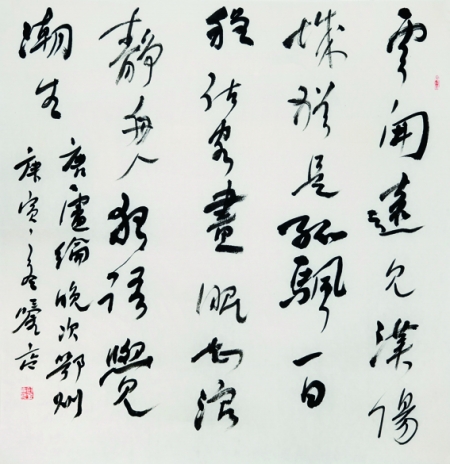 雲開遠見漢陽
城猶是孤颿一日
程估客晝眠知浪
靜舟人夜語覺
潮生
唐盧綸晚次鄂州
庚寅之冬